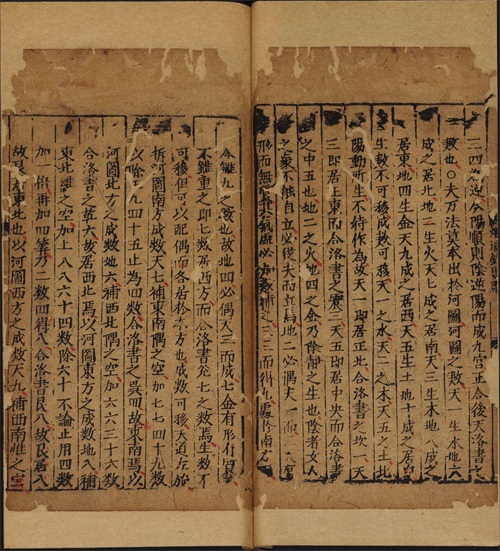 二四逆合陽順則陰逆陽而成九宮正合後天洛書之
数也○夫万法莫本出於河圖河圖之数天一生水地六
成之居北地二生火天七成之居南天三生木地八成之
居東地四生金天九成之居西天五生土地十成之居
生数不可移成数可移天一之水天三之木天五之土
陽動所生不待作為故天一即居正北合洛書之坎一天
三即居正東而合洛書之震三天五即居中央而合洛書
之中五也地二之火地四之金乃陰靜之生也陰者女人
之象不能自立必後夫而立焉地二必偶天一而有
形而無氣虛必加数補之三而得九居於南之
合離九之数也故地四必偶天三而成七金有形有質
不雖重之即七数居西方而合洛書兌七之数焉生数不
可移但可以配偶而各居於本方也成数可移天道左旋
拆河圖南方成数天七補東南隅之空加七七四十九数
以除九四十五止為四数合洛書之巽四故東南焉以
河圖北方之成数地六補西北隅之空加六六三十六数
合洛書之乾六故居西北焉以河圖東方之成数地八補
東北維之空加上八八六十四数除六十不論止用四数
加一倍再加四筭乃二数四得八合洛書艮八故艮居八
故艮東北也以河圖西方之成数天九補西南維之空